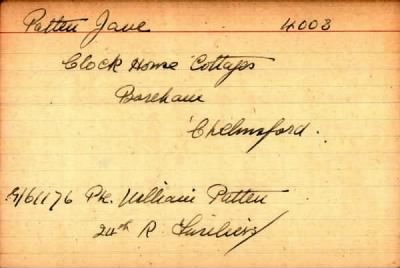 Patten Jane 4003
Clock House Cottages
Boreham
Chelmsford.
G/61176 Pte. William Patten
24th R. Fusiliers